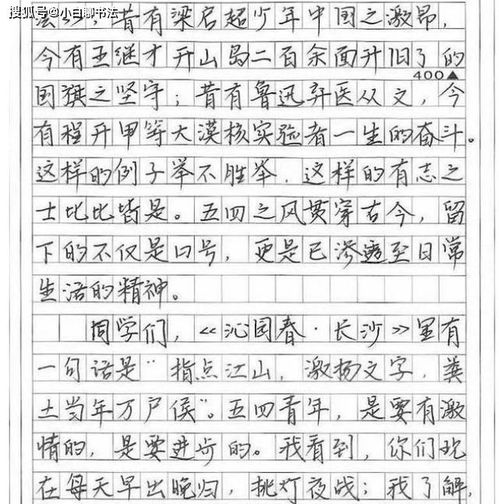 搜狐号@小白聊书法
昔有梁启超少年中国之激昂,
今有王继才开山岛二百余面升旧了的
400▲
国旗之坚守;昔有鲁迅弃医从文,今
有程开甲等大漠核实验者一生的奋斗。
这样的例子举不胜举,这样的有志之
士比比皆是。五四之风贯穿古今,留
下的不仅是口号,更是已渗透至日常
生活的精神。
同学们,《沁园春·长沙》里有
一句话是“指点江山,激扬文字,粪
土当年万户侯”。五四青年,是要有激
情的,是要进步的。我看到,你们现
在每天早出晚归,挑灯夜战;我了解,